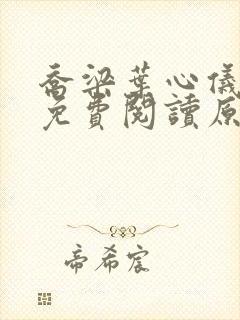 喬梁葉心儀
免費閱讀原
帝希宸